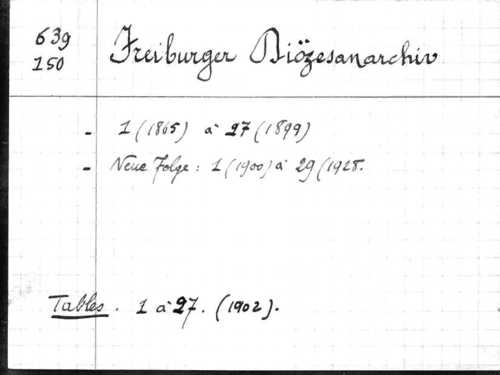 639 Freiburger Diözesanarchiv
150
- 1 (1865) à 27 (1899)
- Neue Folge : 1 (1900) à 29 (1928.
Tables. 1 à 27. (1902).